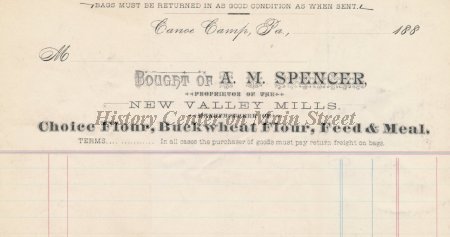 BAGS MUST BE RETURNED IN AS GOOD CONDITION AS WHEN SENT.
Canoe Camp, Pa., 188
M
BOUGHT OF A. M. SPENCER,
PROPRIETOR OF THE
NEW VALLEY MILLS.
History Center on Main Street
Choice Flour, Buckwheat Flour, Feed & Meal.
TERMS.......... In all cases the purchaser of goods must pay return freight on bags.